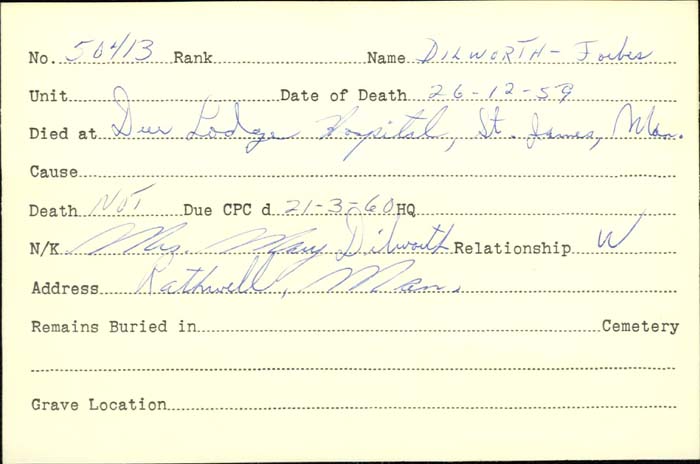 No. 50413 Rank Name DILWORTH - Forbes
Unit Date of Death 26-12-59
Died at Deer Lodge Hospital, St. James, Man.
Cause
Death NOT Due CPC d 21-3-60 HQ
N/K Mrs. Mary Dilworth Relationship W
Address Rathwell, Man.
Remains Buried in Cemetery
Grave Location